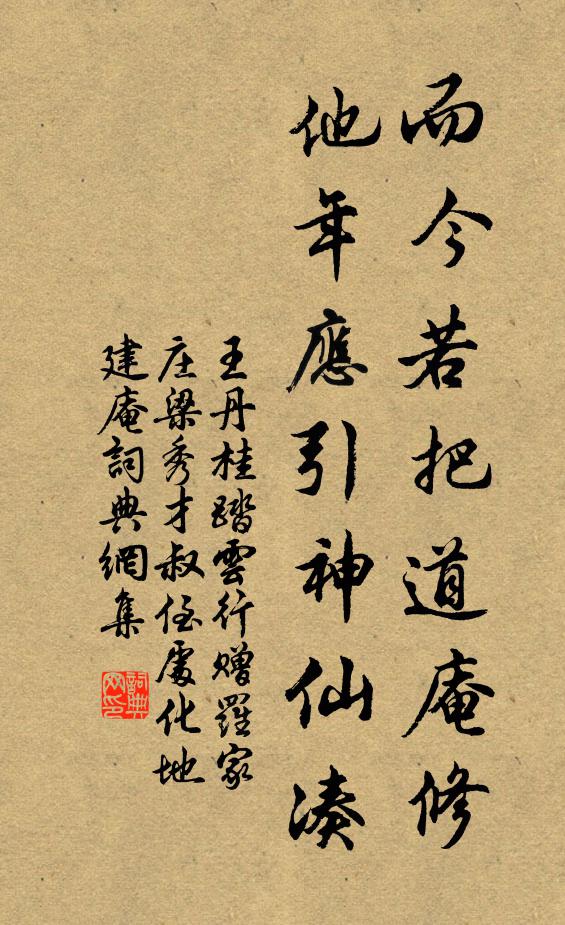 而今若把道庵修
他年應引神仙湊
王丹桂踏雲行贈羅家
庄梁秀才叔侄處化地
建庵詞典網集
詞典
网印